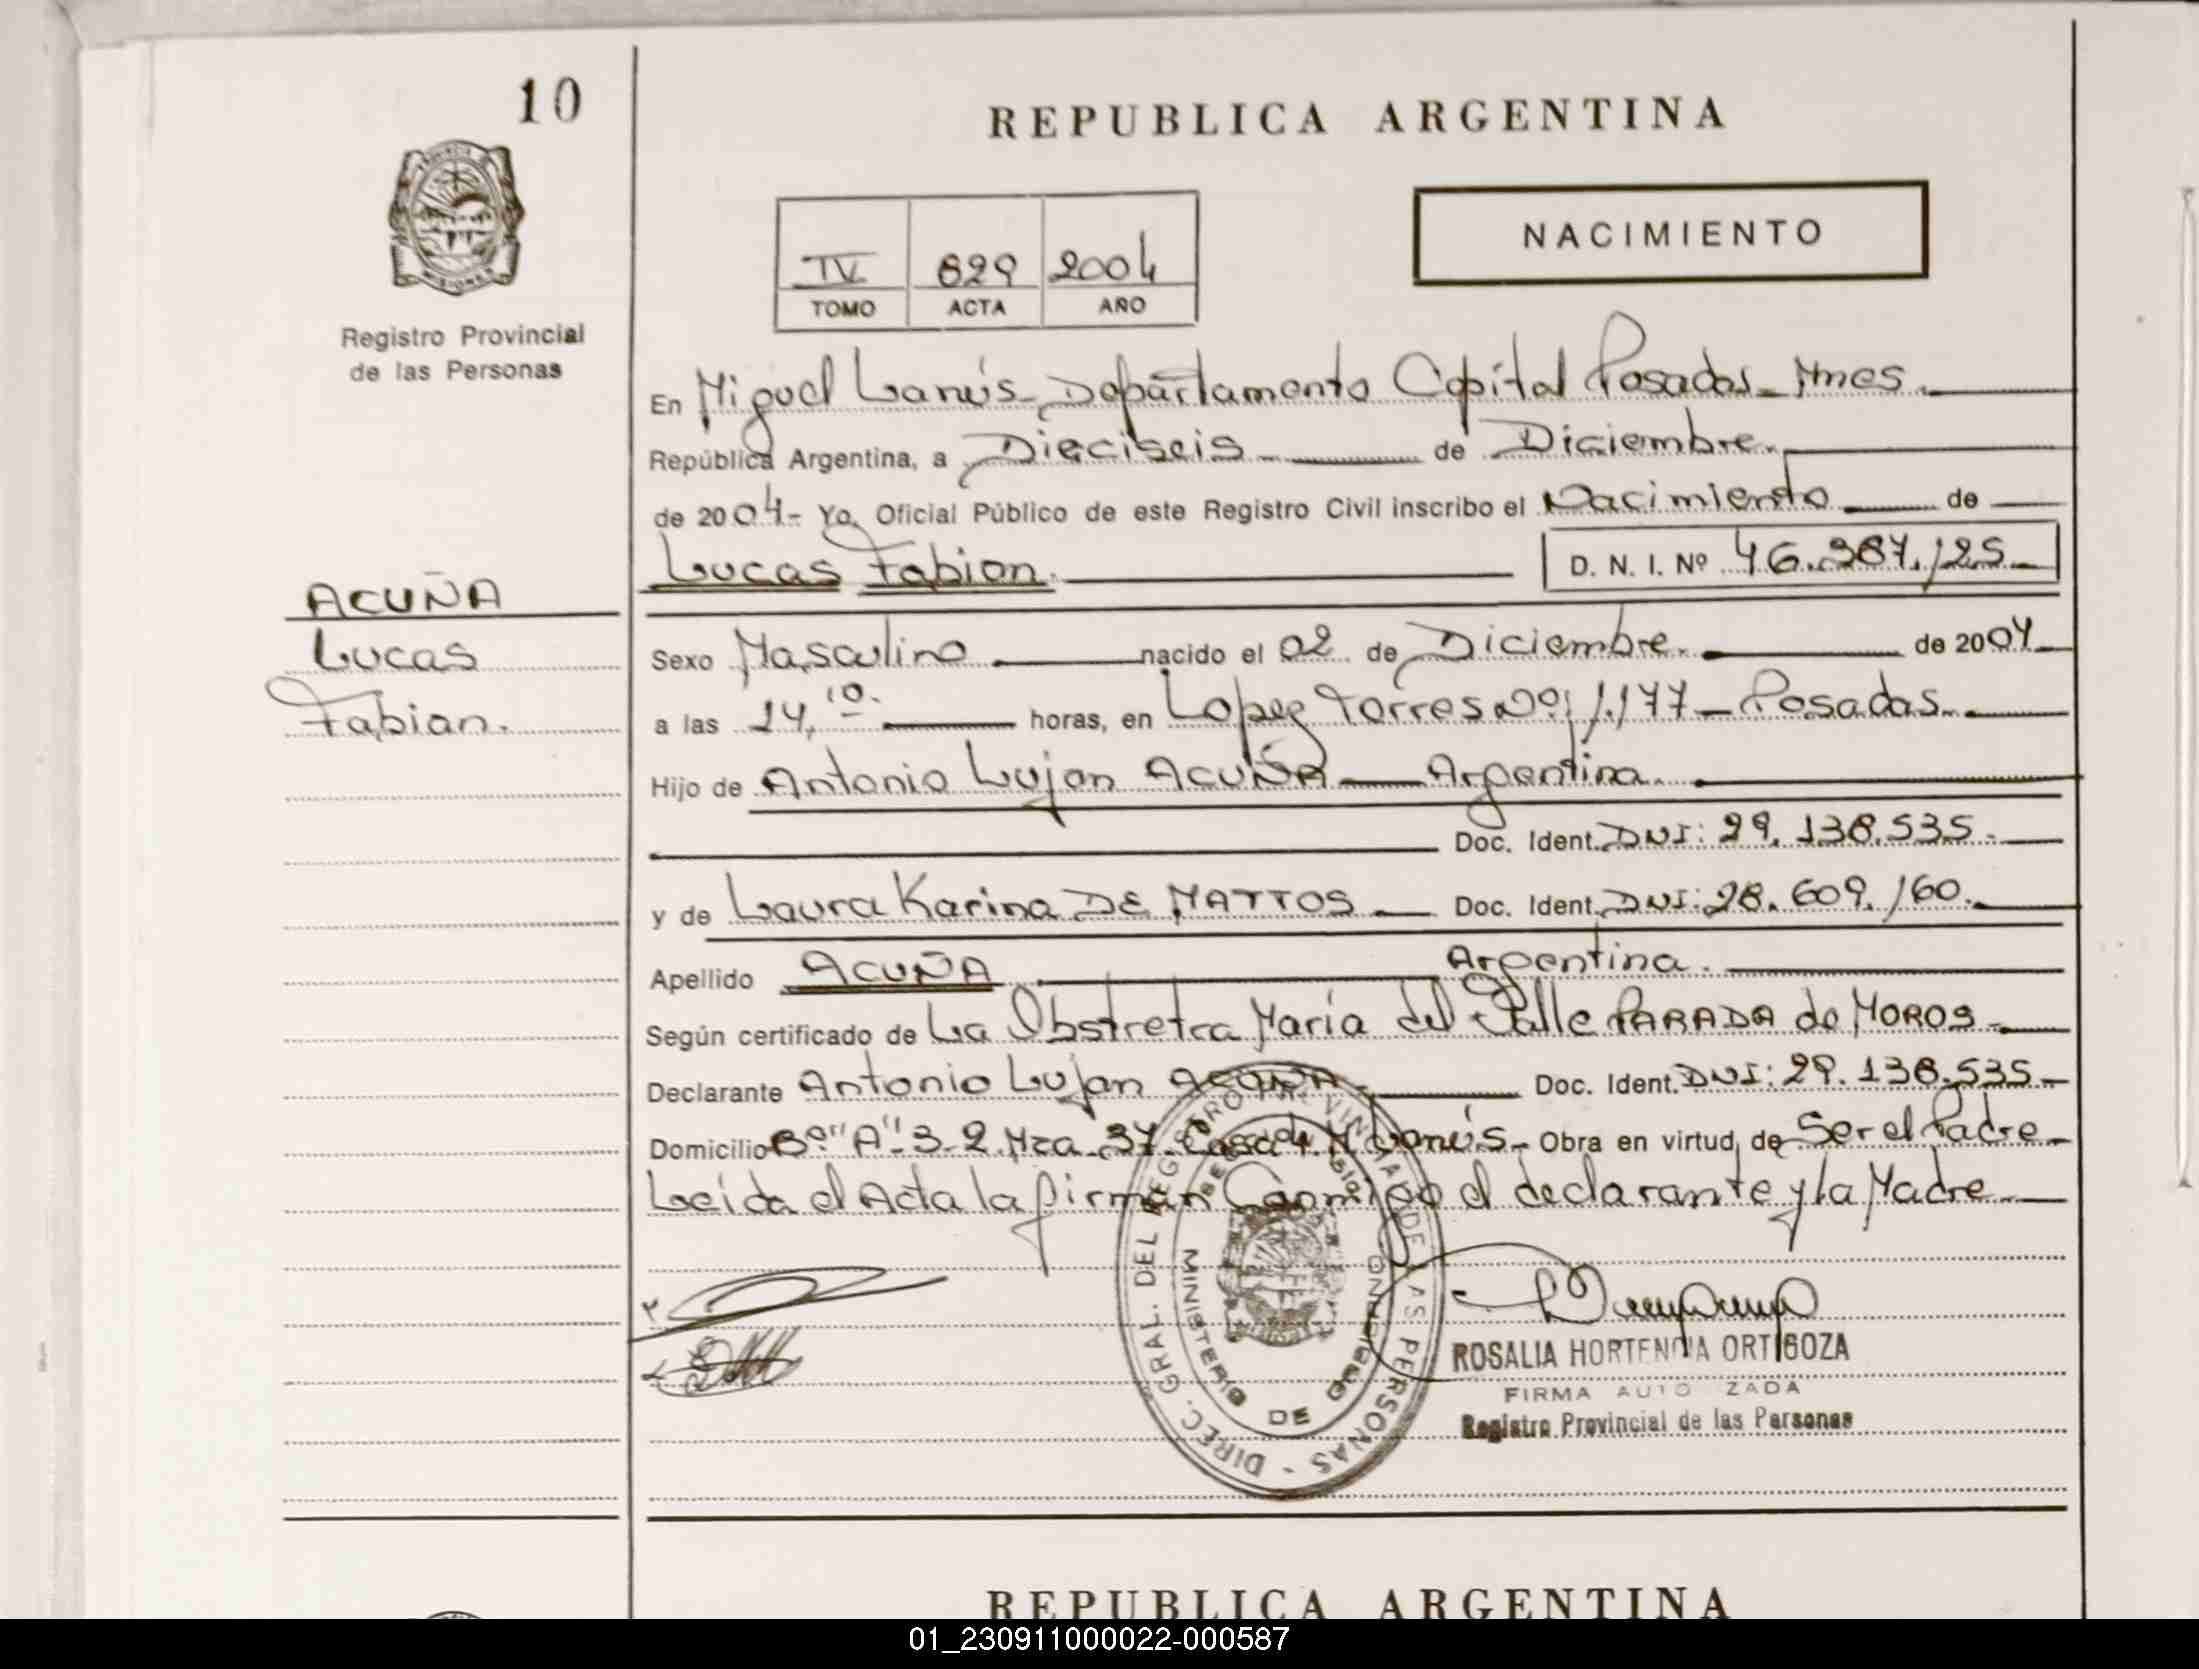 10
REPUBLICA ARGENTINA
NACIMIENTO
IV 629 2004
TOMO ACTA AÑO
Registro Provincial
de las Personas
En Miguel Lanús - Departamento Capital Posadas - Mnes.
República Argentina, a Dieciseis de Diciembre.
de 2004 - Yo, Oficial Público de este Registro Civil inscribo el Nacimiento de
Lucas Fabian. D. N. I. Nº 46.387.125
ACUÑA
Lucas
Fabian.
Sexo Masculino nacido el 02 de Diciembre. de 2004
a las 14,10. horas, en Lopez Torres Nº 1.177 - Posadas.
Hijo de Antonio Lujan ACUÑA Argentina.
Doc. Ident. DNI: 29.138.535.
y de Laura Karina DE MATTOS Doc. Ident. DNI: 28.609.160.
Argentina.
Apellido ACUÑA
Según certificado de La Obstretra María del Valle PARADA de MOROS
Declarante Antonio Lujan ACUÑA Doc. Ident. DNI: 29.138.535
Domicilio Bº "A" - 3-2 Mza. 37 - Casa 4. M. Lanús - Obra en virtud de Ser el Padre
Leída el Acta la firman Conmigo el declarante y la Madre
DIREC. GRAL. DEL REGISTRO PROVINCIAL DE LAS PERSONAS -
MINISTERIO DE GOBIERNO
ROSALIA HORTENCIA ORTIGOZA
FIRMA AUTORIZADA
Registro Provincial de las Personas
REPUBLICA ARGENTINA
01_230911000022-000587